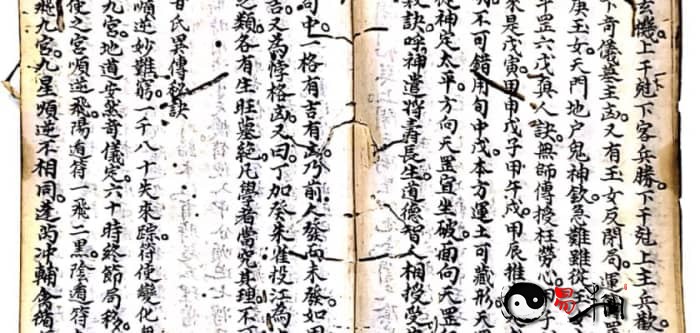 玄機上干尅下客兵勝下干尅上主兵歡
下奇儀墓主凶又有玉女反閉局運
庚玉女天門地户鬼神欽急難雖從
罡六戊真人訣無師傳授枉勞心
來是戊寅甲申戊子甲午戊甲辰推
不可錯用旬中戊本方運土可藏形天
從神定太平方向天罡宜坐破面向天罡
訣呼神遣將壽長生道德智人相授受
句中一格有吉有凶乃前人發而未發如甲
吉又為悖格凶又曰丁加癸朱雀投江為
之類各有生旺墓絶凡學者當究其理不可
氏異傳秘訣
順逆妙難窮一千八十失來踪符使變化
九宮地道安然奇儀定六十時終節局移
使之宮順逆飛陽遁符一飛二黑陰遁符
飛九宮九星順逆不相同蓬芮冲輔禽
易